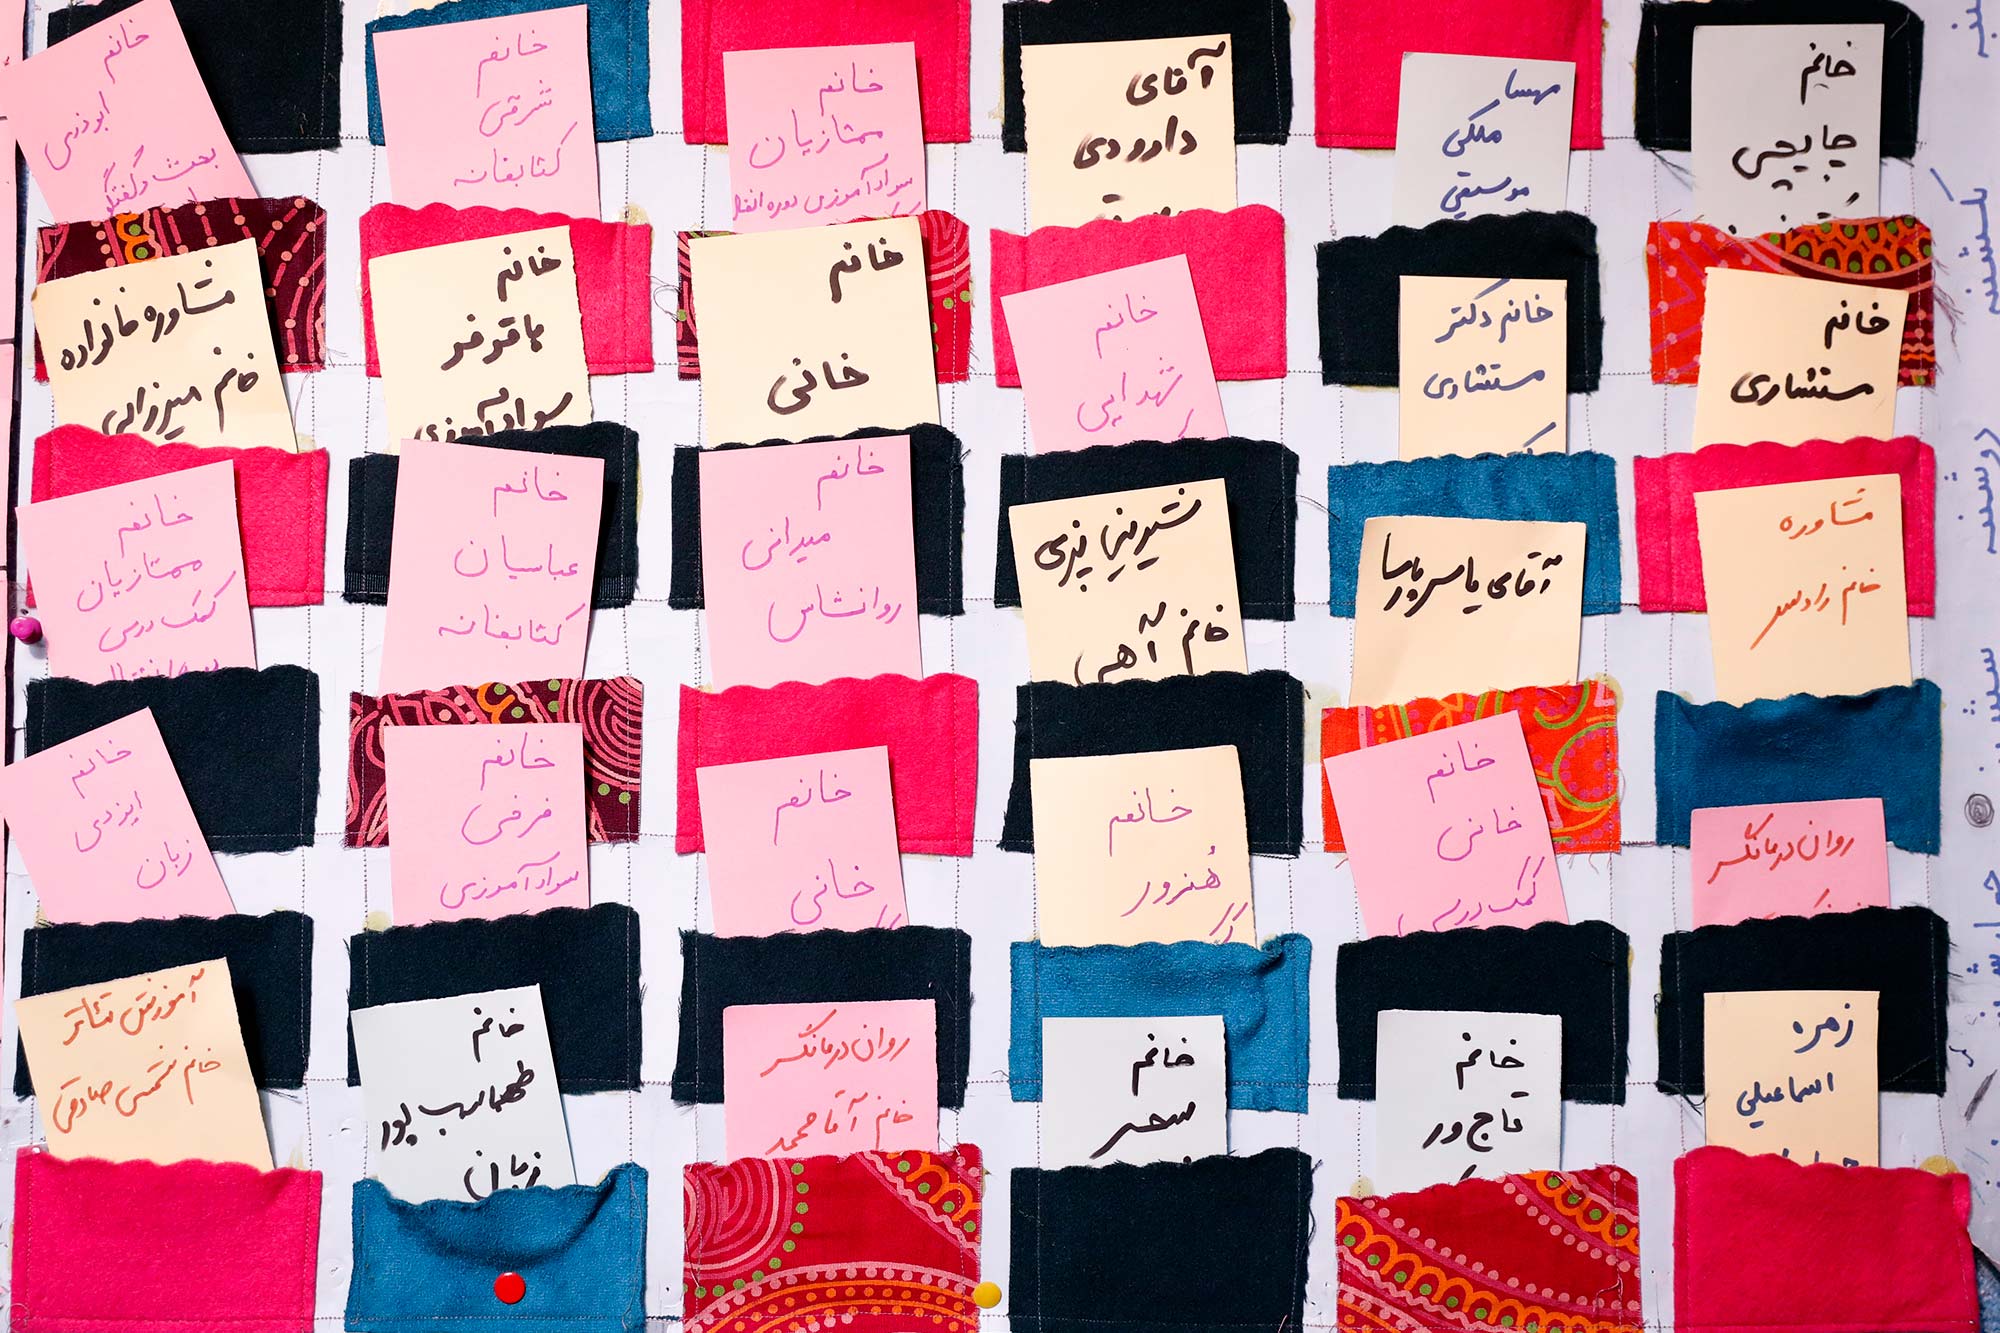 خانم
ابوذری
بحث و گفتگو
خانم
شرقی
کتابخانه
خانم
ممتازیان
سوادآموزی دوره انتقال
آقای
داوودی
مهسا
ملکی
موسیقی
خانم
چاپچی
یکشنبه
دوشنبه
مشاوره خانواده
خانم میرزائی
خانم
باقرفر
سوادآموزی
خانم
خانی
خانم
شهدایی
خانم دکتر
مستشاری
خانم
مستشاری
خانم
ممتازیان
کمک درسی
خانم
عباسیان
کتابخانه
خانم
میدانی
روانشناس
شیرینی پزی
خانم آهی
آقای یاسر پارسا
مشاوره
خانم رادسر
خانم
ایزدی
زبان
خانم
فرخی
سوادآموزی
خانم
خانی
خانم
هُنرور
خانم
خانی
کمک درسی
روان درمانگر
آموزش تئاتر
خانم شمس صادقی
خانم
طهماسب پور
زبان
روان درمانگر
خانم آقامحمد
خانم
سحر
خانم
تاج ور
زمره
اسماعیلی